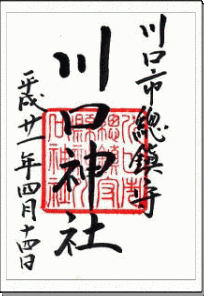 川口市総鎮守
川口神社
平成廿一年四月十四日